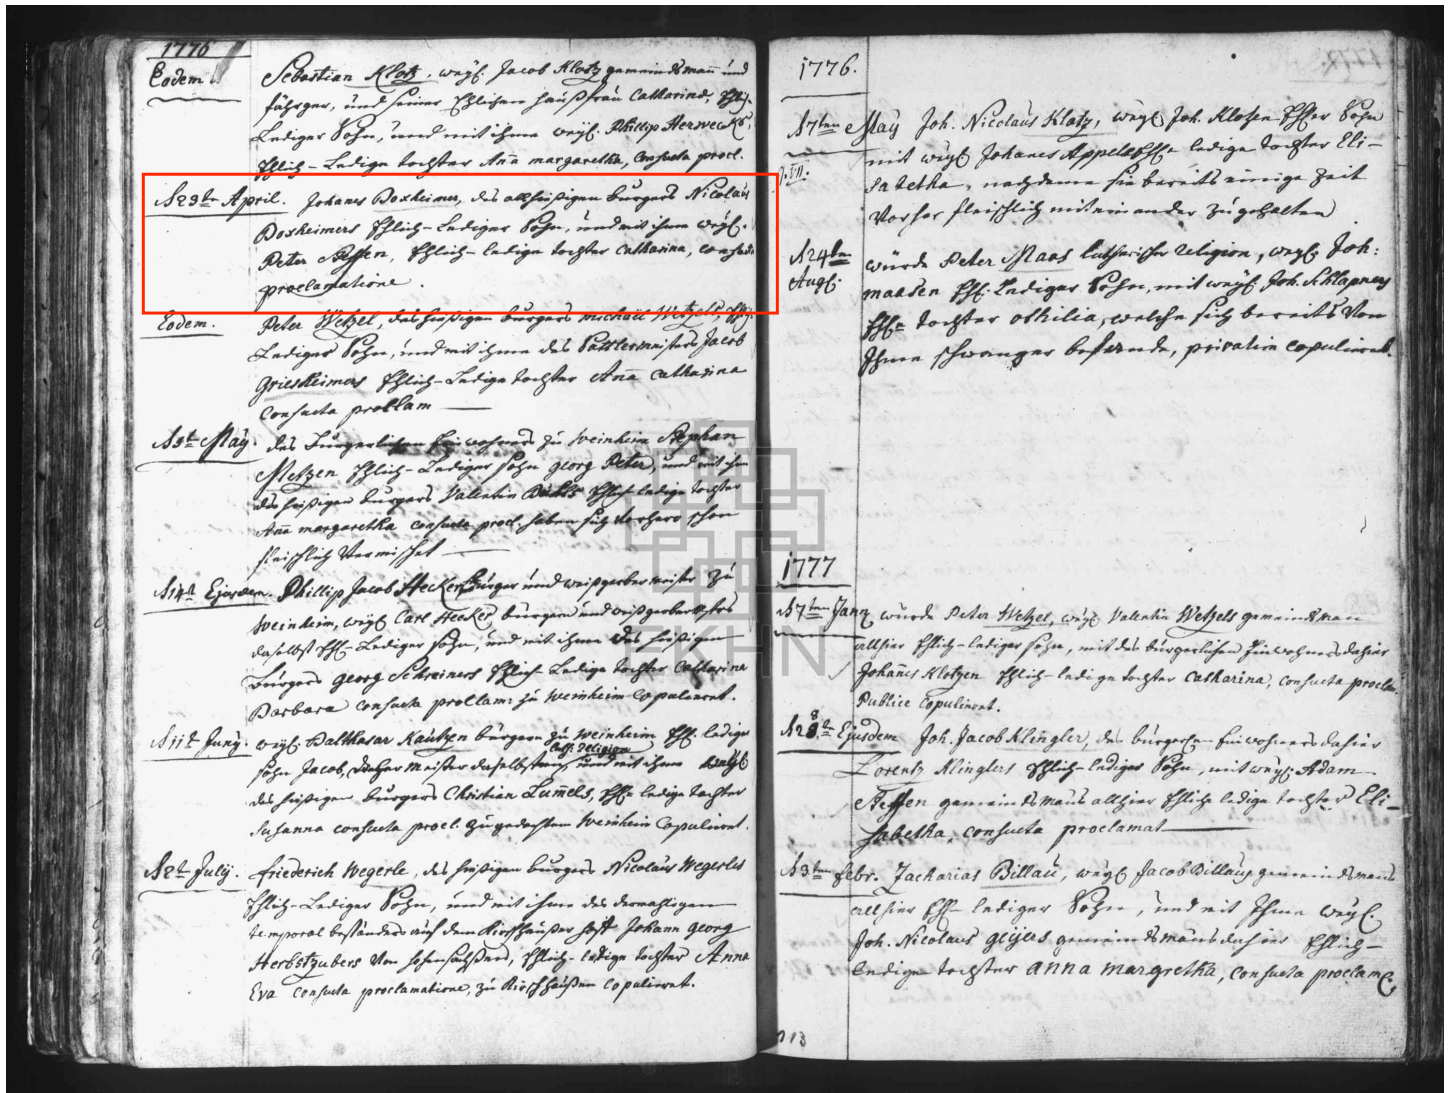 1776
Eodem
Sebastian Klotz, weyl. Jacob Klotz gemeindsmann und
und seiner Ehlichen Haußfrau Catharina, Ehl.
Lediger Sohn, und mit ihme weyl. Phillip
Ehlich-Ledige tochter Anna margaretha, consueta procl.
d 23te April. Johanes Boxheimer, des allhiesigen burgers Nicolaus
Boxheimers Ehlich-Lediger Sohn, und mit ihm weyl.
Peter Steffen, Ehlich-ledige tochter Catharina, consueta
proclamatione.
Eodem.
Peter Wetzel, des hießigen burgers michael Wetzels, Ehl.
Lediger Sohn, und mit ihme des Sattlermeisters Jacob
Griesheimers Ehlich-Ledige tochter Anna Catharina
consueta proclam
May. des burgerlichen Einwohners zu Weinheim Stephan
Metzen Ehlich-Lediger sohn georg Peter, und mit ihm
des hießigen burgers Valentin Ehlich ledige tochter
Anna margaretha consueta procl. haben sich vorhero schon
fleischlich Vermischet
d 14t Ejusdem. Phillip Jacob Hecker burger und weißgerbermeister zu
Weinheim, weyl. Carl Hecker burgers und
daselbst Ehl-Lediger Sohn, und mit ihme des hießigen
burgers georg Schreiners Ehlich Ledige tochter Catharina
Barbara consueta proclam: zu Weinheim copuliret.
d 11t Juny. weyl. Balthasar Kautzen burgers zu Weinheim Ehl. lediger
Religion
Sohn Jacob, meister daselbst und mit ihme
des hießigen burgers Christian Lumels, Ehl- ledige tochter
Susanna consueta procl. zu gedachtem Weinheim Copuliret.
d 2t July. friederich Wegerle, des hießigen burgers Nicolaus Wegerles
Ehlich-Lediger Sohn, und mit ihme des dermahligen
temporal beständers auf dem Hoff Johann georg
Ehlich-ledige tochter Anna
Eva consueta proclamatione, zu copuliret.
1776.
d 7ten May Joh. Nicolaus Klotz, weyl Joh. Klotzen Ehl Sohn
mit weyl Johanes Appels Ehl- ledige tochter Eli-
sabetha, nachdeme sie bereits einige Zeit
Vorher fleischlich miteinander zugehalten
d 24ten
Aug.
wurde Peter Maas lutherischer religion, weyl Joh:
maasen Ehl. Lediger Sohn, mit weyl. Joh. Schlapners
Ehl- tochter othilia, welche sich bereits Von
Ihme schwanger befande, privatim copuliret.
1777
d 7ten Jan wurde Peter Wetzel, weyl Valentin Wetzels gemeindsman
allhier Ehlich-lediger sohn, mit des bürgerlichen Einwohners dahier
Johannes Klotzen Ehlich-ledige tochter Catharina, consueta proclam.
Publice Copuliret.
d 28t Ejusdem Joh. Jacob Klingler, des bürgerl. Einwohners dahier
Lorentz Klinglers Ehlich-lediger Sohn, mit weyl. Adam
Steffen gemeindsmans allhier Ehliche ledige tochter Eli-
sabetha, consueta proclamat
d 3ten febr. Zacharias Billau, weyl Jacob Billaus gemeindsmans
allhier Ehl- lediger Sohn, und mit Ihme weyl.
Joh. Nicolaus gemeindsmans dahier Ehlich-
ledige tochter Anna margretha, consueta proclam.
EKHN